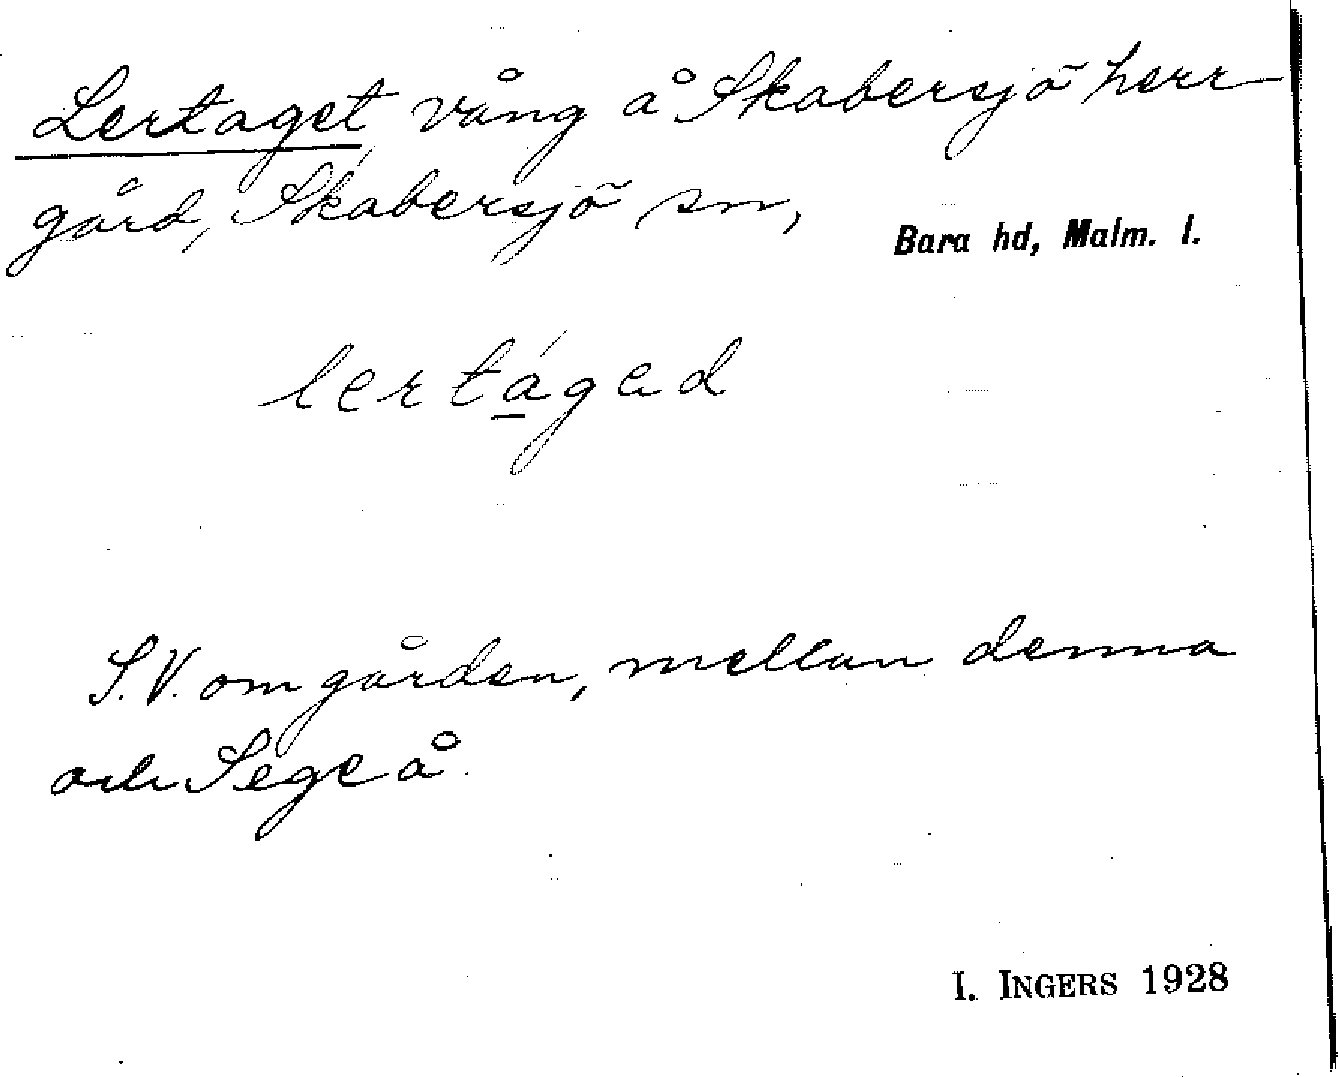 Lertaget, vång å Skabersjö herr-
gård, Skabersjö sn,
Bara hd, Malm. l.
lertágəd
S.V. om gården, mellan denna
och Sege å.
I. INGERS 1928